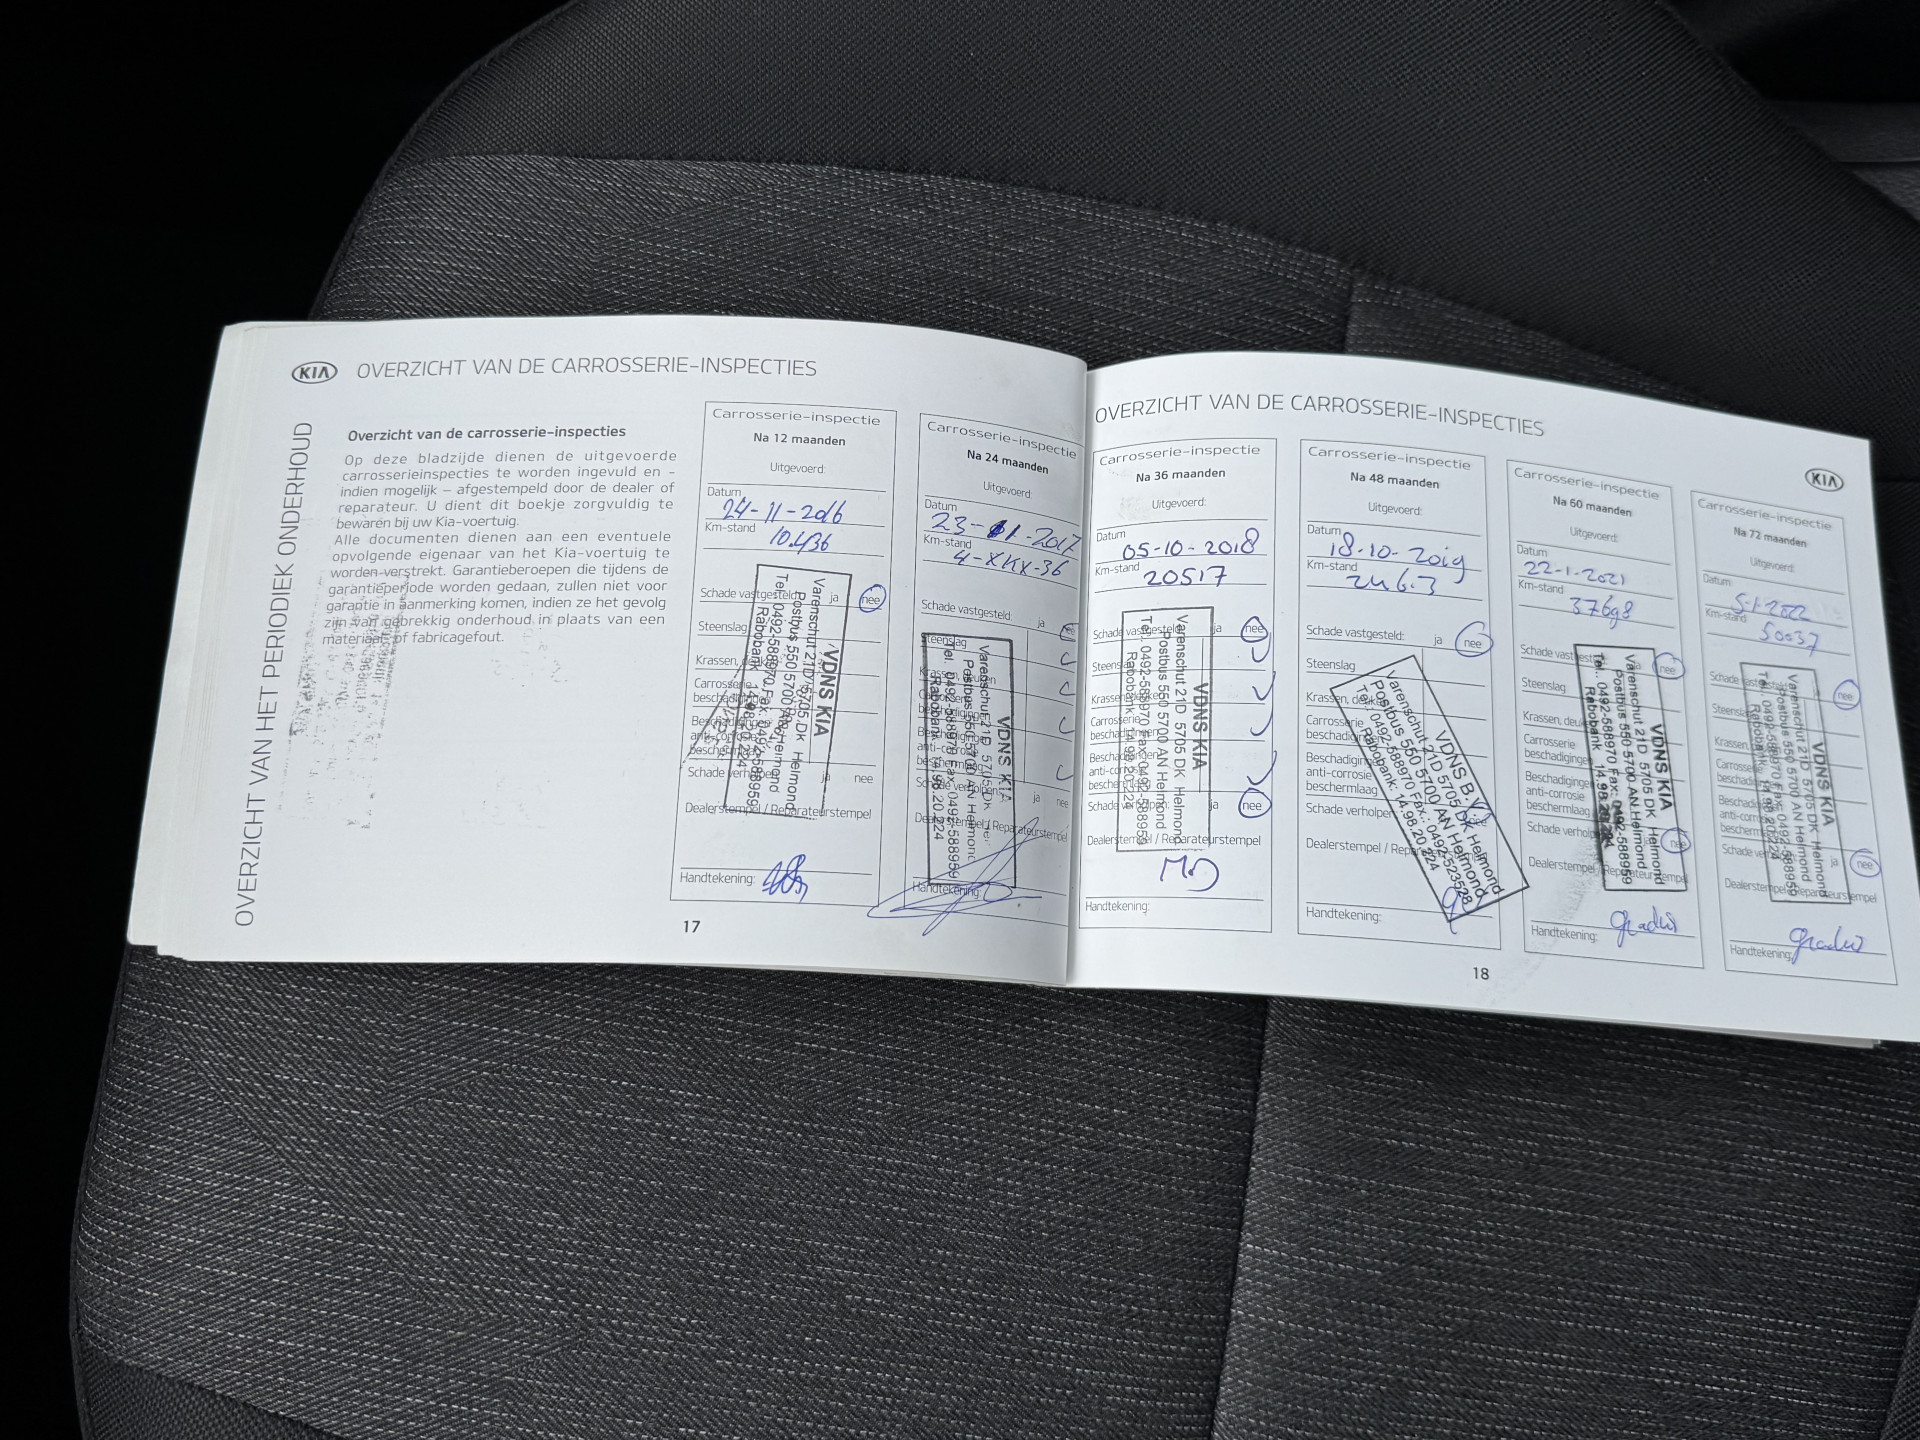 KIA OVERZICHT VAN DE CARROSSERIE-INSPECTIES
OVERZICHT VAN HET PERIODIEK ONDERHOUD
Overzicht van de carrosserie-inspecties
Op deze bladzijde dienen de uitgevoerde
carrosserieinspecties te worden ingevuld en –
indien mogelijk – afgestempeld door de dealer of
reparateur. U dient dit boekje zorgvuldig te
bewaren bij uw Kia-voertuig.
Alle documenten dienen aan een eventuele
opvolgende eigenaar van het Kia-voertuig te
worden verstrekt. Garantieberoepen die tijdens de
garantieperiode worden gedaan, zullen niet voor
garantie in aanmerking komen, indien ze het gevolg
zijn van gebrekkig onderhoud in plaats van een
materiaal- of fabricagefout.
Carrosserie-inspectie
Na 12 maanden
Uitgevoerd:
Datum
24-11-2016
Km-stand
10.436
Schade vastgesteld: ja nee
Steenslag
Krassen, deuken
Carrosserie
beschadigingen
Beschadigingen
anti-corrosie
beschermlaag
Schade verholpen: ja nee
Dealerstempel / Reparateurstempel
Handtekening:
VDNS KIA
Varenschut 21D 5705 DK Helmond
Postbus 550 5700 AN Helmond
Tel.: 0492-588970 Fax.: 0492-588959
Rabobank 14.98.20.224
17
Carrosserie-inspectie
Na 24 maanden
Uitgevoerd:
Datum
23-11-2017
Km-stand
4-XKX-36
Schade vastgesteld: nee
Steenslag
Krassen, deuken
beschadigingen
Beschadigingen
anti-corrosie
beschermlaag
Schade verholpen: ja nee
Dealerstempel / Reparateurstempel
Handtekening:
VDNS KIA
Varenschut 21D 5705 DK
Postbus 550 5700 AN Helmond
Tel. 0492-588970 Fax.: 0492-588959
Rabobank 14.98.20.224
OVERZICHT VAN DE CARROSSERIE-INSPECTIES KIA
Carrosserie-inspectie
Na 36 maanden
Uitgevoerd:
Datum
05-10-2018
Km-stand
20517
Schade vastgesteld: ja nee
Steenslag
Krassen, deuken
Carrosserie
beschadigingen
Beschadigingen
anti-corrosie
beschermlaag
Schade verholpen: ja nee
Dealerstempel / Reparateurstempel
Handtekening:
VDNS KIA
Varenschut 21D 5705 DK Helmond
Postbus 550 5700 AN Helmond
Tel.: 0492-588970 Fax.: 0492-588959
Rabobank 14.98.20.224
Carrosserie-inspectie
Na 48 maanden
Uitgevoerd:
Datum
18-10-2019
Km-stand
Schade vastgesteld: ja nee
Steenslag
Krassen, deuken
Carrosserie
beschadigingen
Beschadigingen
anti-corrosie
beschermlaag
Schade verholpen: nee
Dealerstempel / Reparateurstempel
Handtekening:
VDNS B.V.
Varenschut 21D 5705 DK Helmond
Postbus 550 5700 AN Helmond
Tel.: 0492-588970 Fax.: 0492-523528
Rabobank: 14.98.20.224
18
Carrosserie-inspectie
Na 60 maanden
Uitgevoerd:
Datum
22-1-2021
Km-stand
37698
Schade vastgesteld: nee
Steenslag
Krassen, deuken
Carrosserie
beschadigingen
Beschadigingen
anti-corrosie
beschermlaag
Schade verholpen: nee
Dealerstempel / Reparateurstempel
Handtekening:
VDNS KIA
Varenschut 21D 5705 DK Helmond
Postbus 550 5700 AN Helmond
Tel.: 0492-588970 Fax: 0492-588959
Rabobank 14.98.20.224
Carrosserie-inspectie
Na 72 maanden
Uitgevoerd:
Datum
5-1-2022
Km-stand
50037
Schade vastgesteld: nee
Steenslag
Krassen, deuken
Carrosserie
beschadigingen
Beschadigingen
anti-corrosie
beschermlaag
Schade verholpen: ja nee
Dealerstempel / Reparateurstempel
Handtekening:
VDNS KIA
Varenschut 21D 5705 DK Helmond
Postbus 550 5700 AN Helmond
Tel.: 0492-588970 Fax: 0492-588959
Rabobank 14.98.20.224